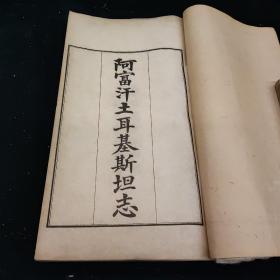 阿富汗土耳基斯坦志